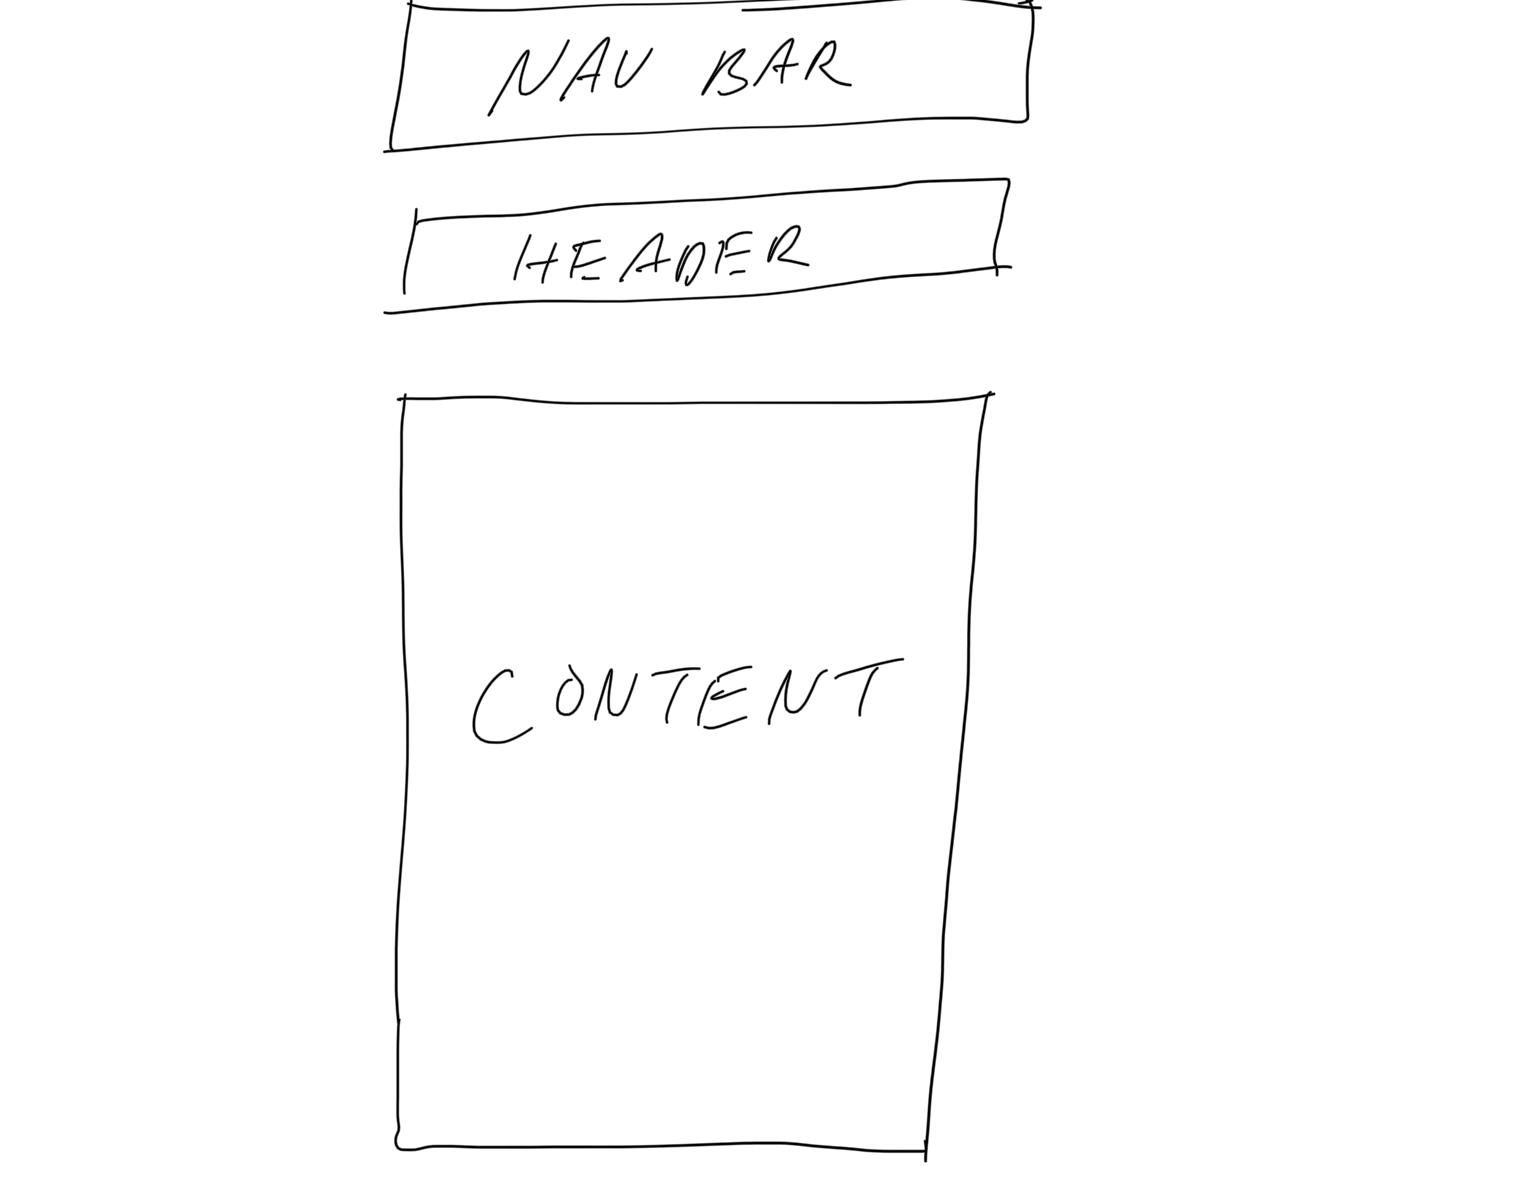 NAV BAR
HEADER
CONTENT